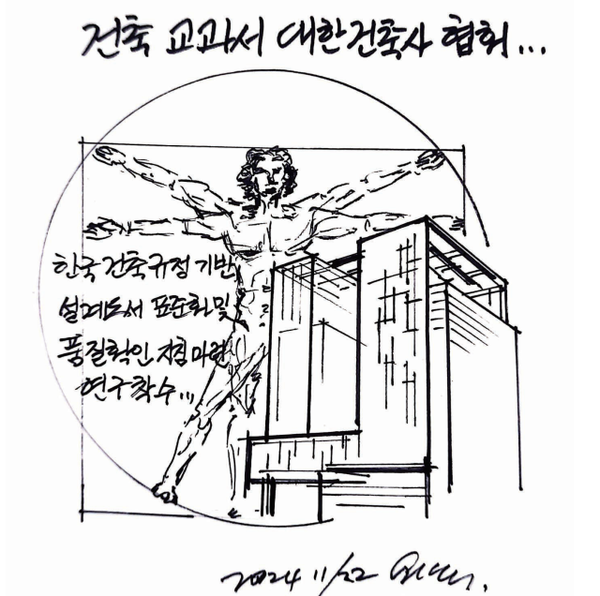 건축 교과서 대한건축사 협회...
한국 건축규정 기반
설계도서 표준화 및
품질확인 지침 마련
연구착수...
2024 11/22